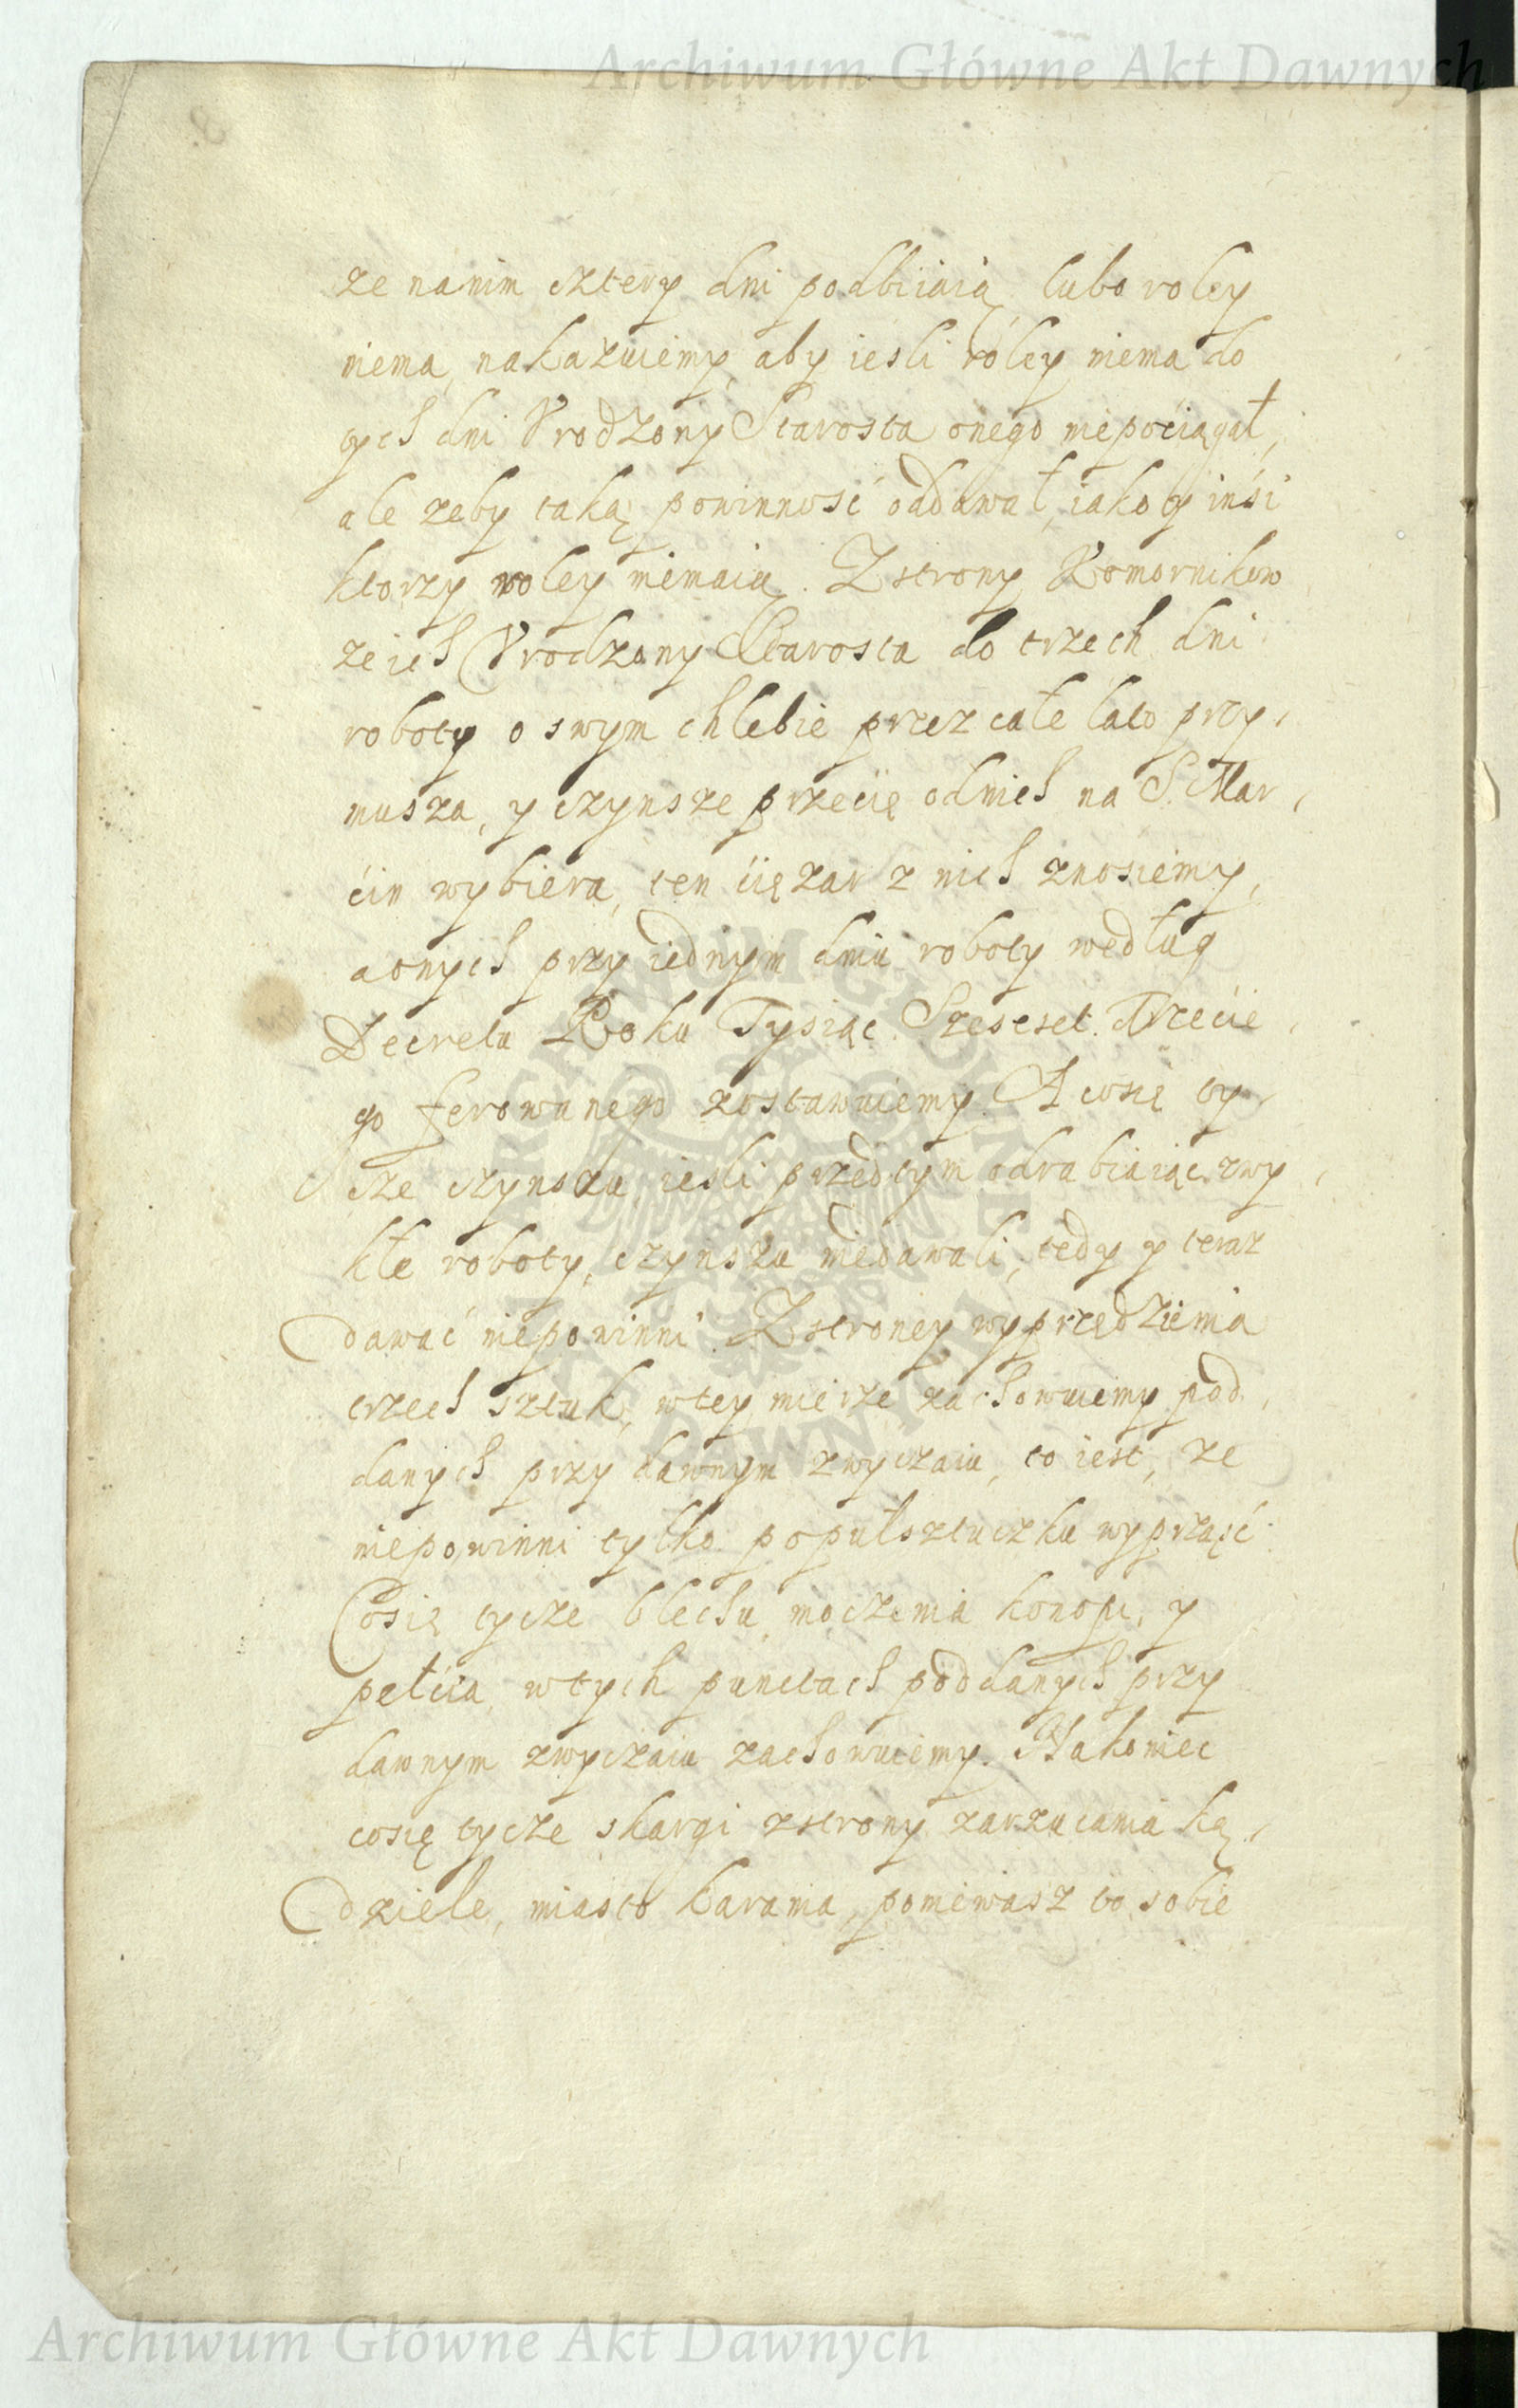 Archiwum Główne Akt Dawnych
ze nanim cztery dni podbiiaią, lubo roley
niema, nakazuiemy, aby iesli roley niema do
tych dni Vrodzony Starosta onego niepociągał,
ale zeby taką powinnosć oddawał, iako y inśi
ktorzy roley niemaią. Zstrony Komornikow
ze ich Vrodzony Starosta do trzech dni
roboty o swym chlebie przez całe lato przy,
musza, y czynsze przecię odnich na S. Mar,
ćin wybiera, ten ćięzar z nich znosiemy,
a onych przy iednym dniu roboty według
Decretu Roku Tysiąc Szescset Trzecie,
go ferowanego zostawuiemy. A cosię ty,
cze czynszu, iesli przedtym odrabiaiąc zwy,
kłe roboty, czynszu niedawali, tedy y teraz
dawać niepowinni. Zstroney wyprzędzienia
trzech sztuk, wtey mierze zachowuiemy pod,
danych przy dawnym zwyczaiu, to iest, ze
niepowinni tylko popułsztuczku wyprząść.
Cosię tycze blechu, moczenia konopi, y
pełcia, wtych punctach poddanych przy
dawnym zwyczaiu zachowuiemy. Nakoniec
cosię tycze skargi zstrony zarzucania ką,
dziele, miasto karania, poniewasz to sobie
Archiwum Główne Akt Dawnych